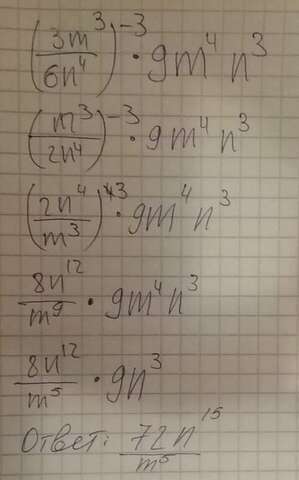 (3m³/6n⁴)⁻³ · 9m⁴n³
(m³/2n⁴)⁻³ · 9m⁴n³
(2n⁴/m³)³ · 9m⁴n³
8n¹²/m⁹ · 9m⁴n³
8n¹²/m⁵ · 9n³
Ответ: 72n¹⁵/m⁵